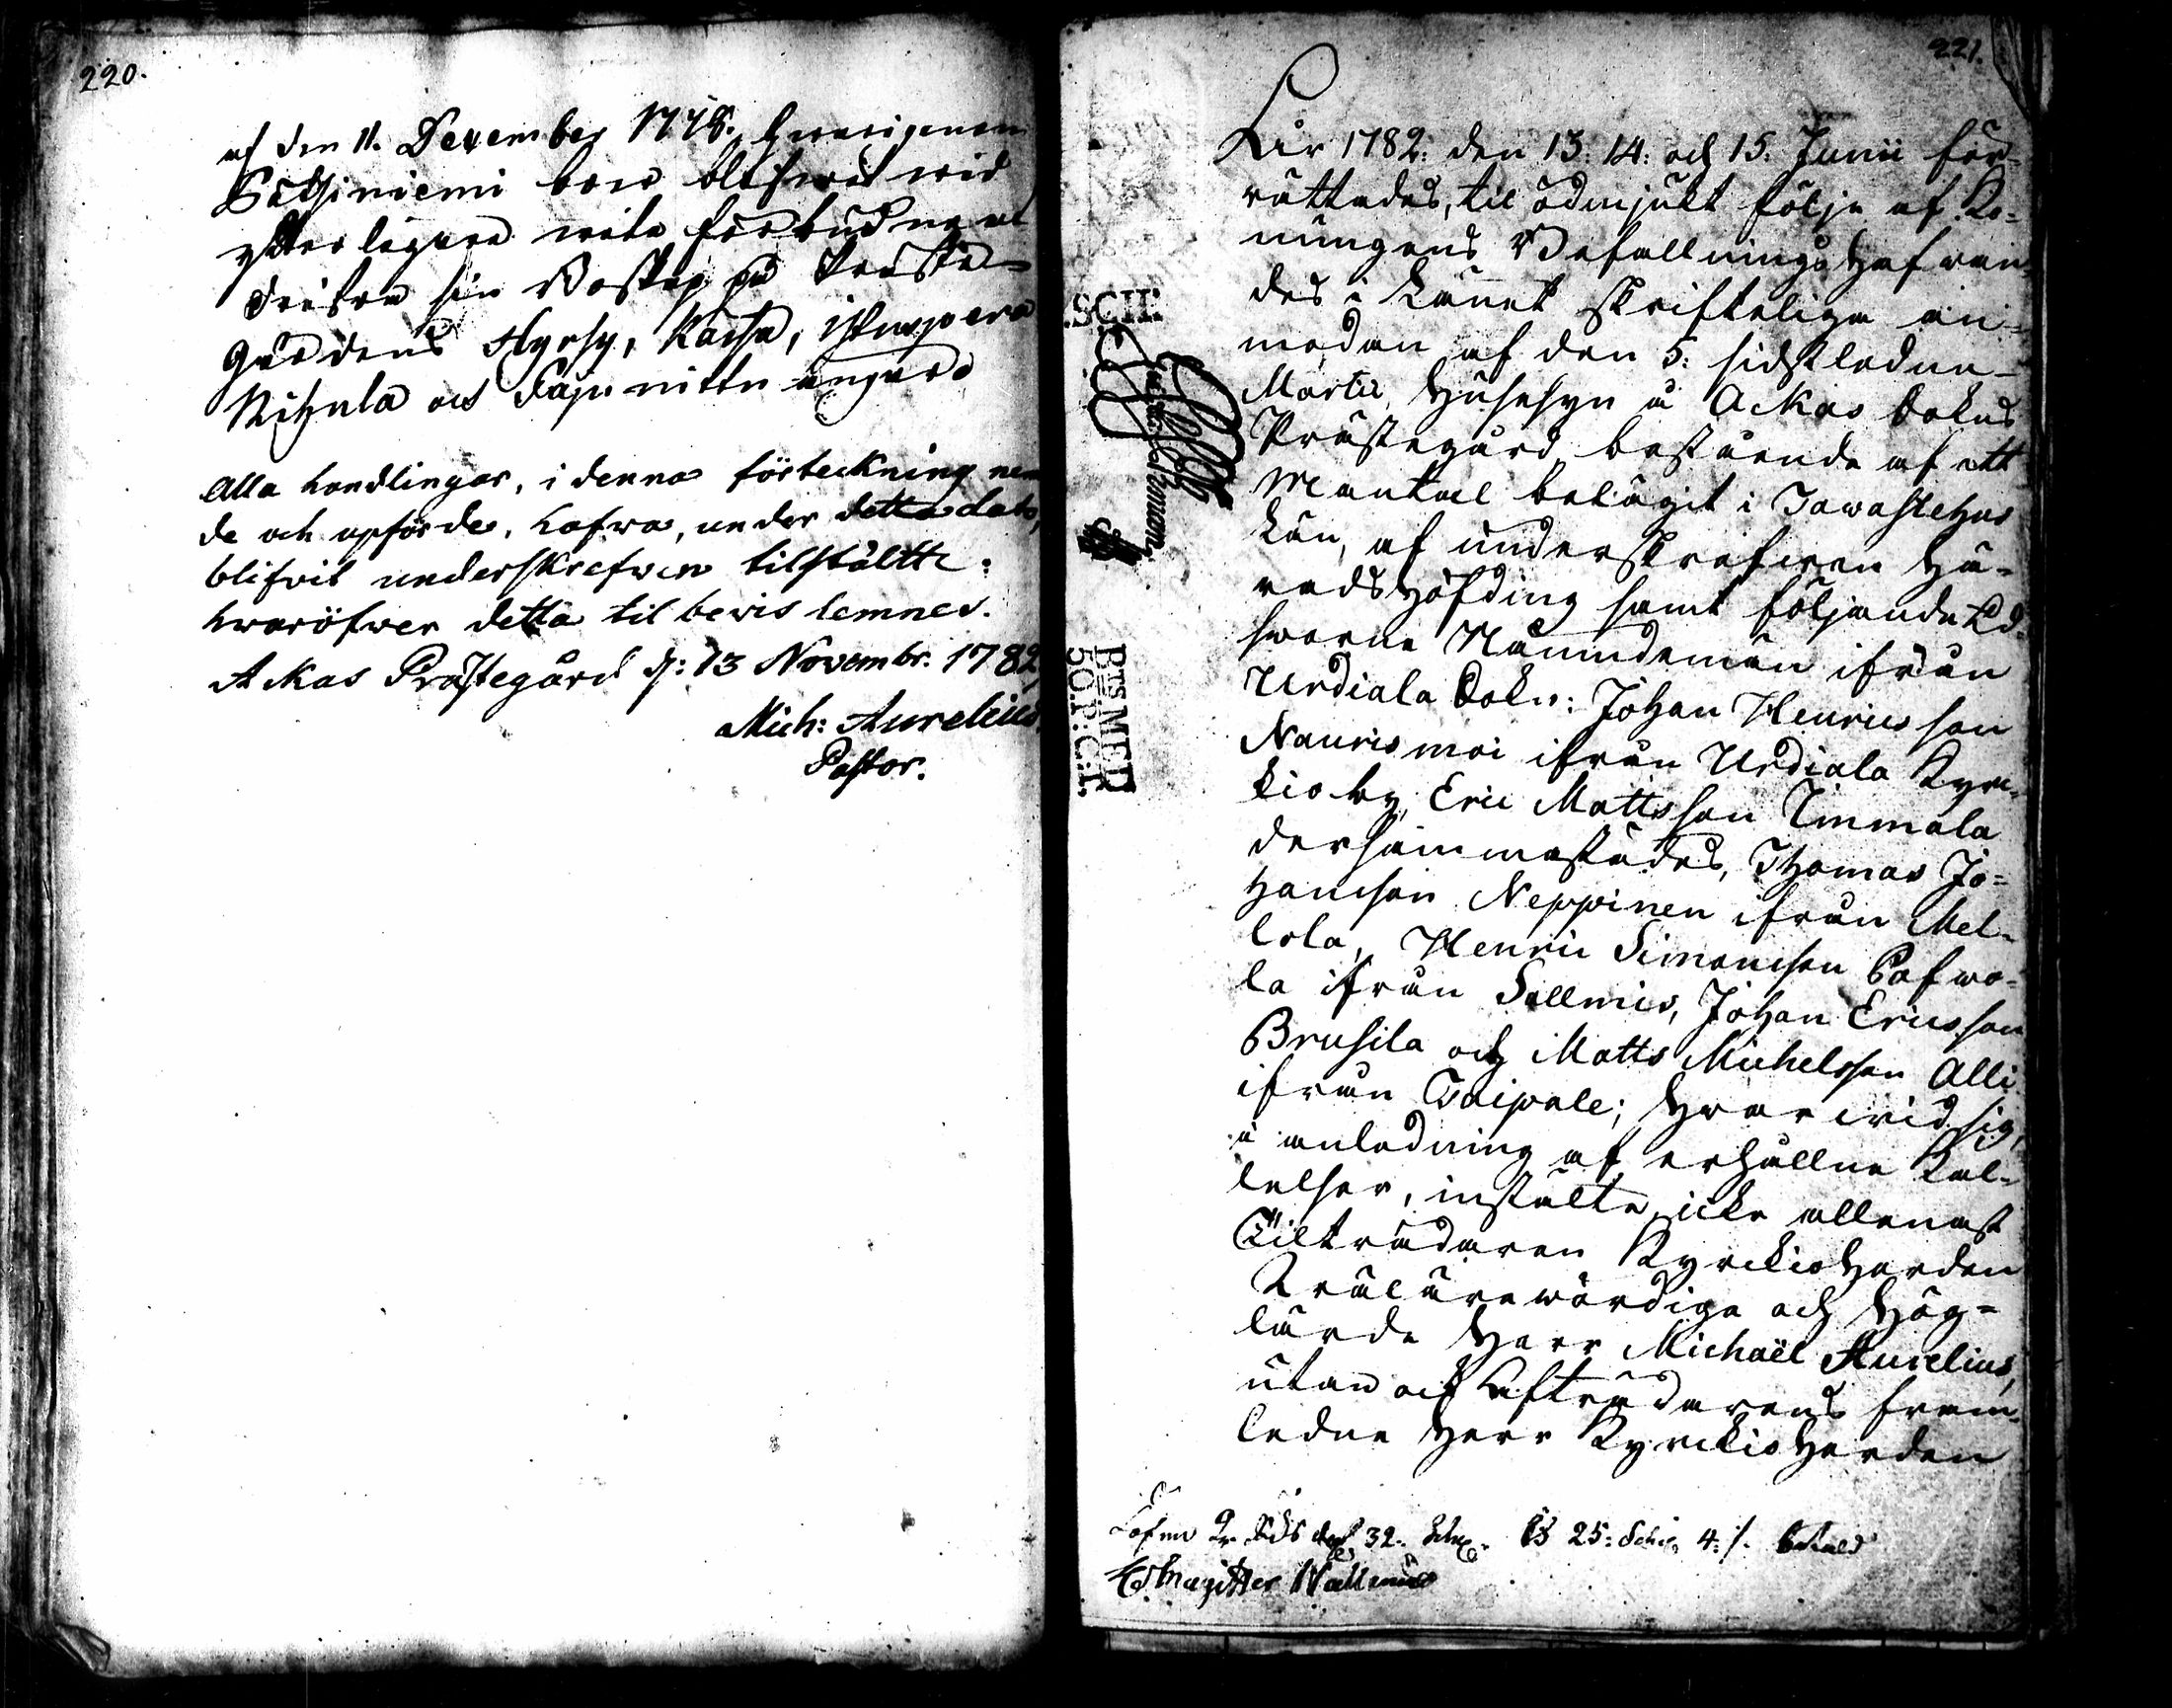 220.
af den 11. December 1748. hwarigenom
Pätsiniemi boer blifwit wid
ytterligare wite förbudne at
drifwa sin Boskap på Prästa-
Gårdens Hyrsy,
Ritzula och Saju nittu ängar.
Alla handlingar, i denna förteckning nem
de och upförde, hafwa, under detta dato,
blifvit underskrefwen tilstälte;
hwaröfwer detta til bevis lemnes.
Akkas Prästegård d: 13 Novembr. 1782
Mich: Aurelius.
Pastor.
221.
År 1782: den 13: 14: och 15. Junii för-
rättades, til ödmjukt följe af Ko-
nungens Befallningshafwan-
des i Länet skrifteliga an-
modan af den 5: sidstledne
Martii, Husesyn å Ackas Sokns
Prästegård, bestående af ett
Mantal belägit i Tawastehus
Län, af underskrefwen Hä-
radshöfding samt följande Ed-
sworne Nämndemän ifrån
Urdiala Sokn: Johan Henricsson
Naurismoi ifrån Urdiala Kyrc-
kioby, Eric Mattsson Timmala
dersammastädes, Thomas Jo-
hansson Neppinen ifrån Mel-
lola, Henric Simonsson Pafwo-
la ifrån Sallmis, Johan Ericsson
Brusila och Matts Michelsson Alli
ifrån Taipale; hwarwid sig,
i anledning af erhållne Kal-
lelser, instälte icke allenast
Tilträdaren Kyrckioherden
Wälärewördige och Hög-
lärde Herr Michaël Aurelius,
utan ock Afträdarens fram-
ledne Herr Kyrckioherden
.SCH:
BTS MET
5Ö.P:C:T.
32. 25: Sch. 4:/.